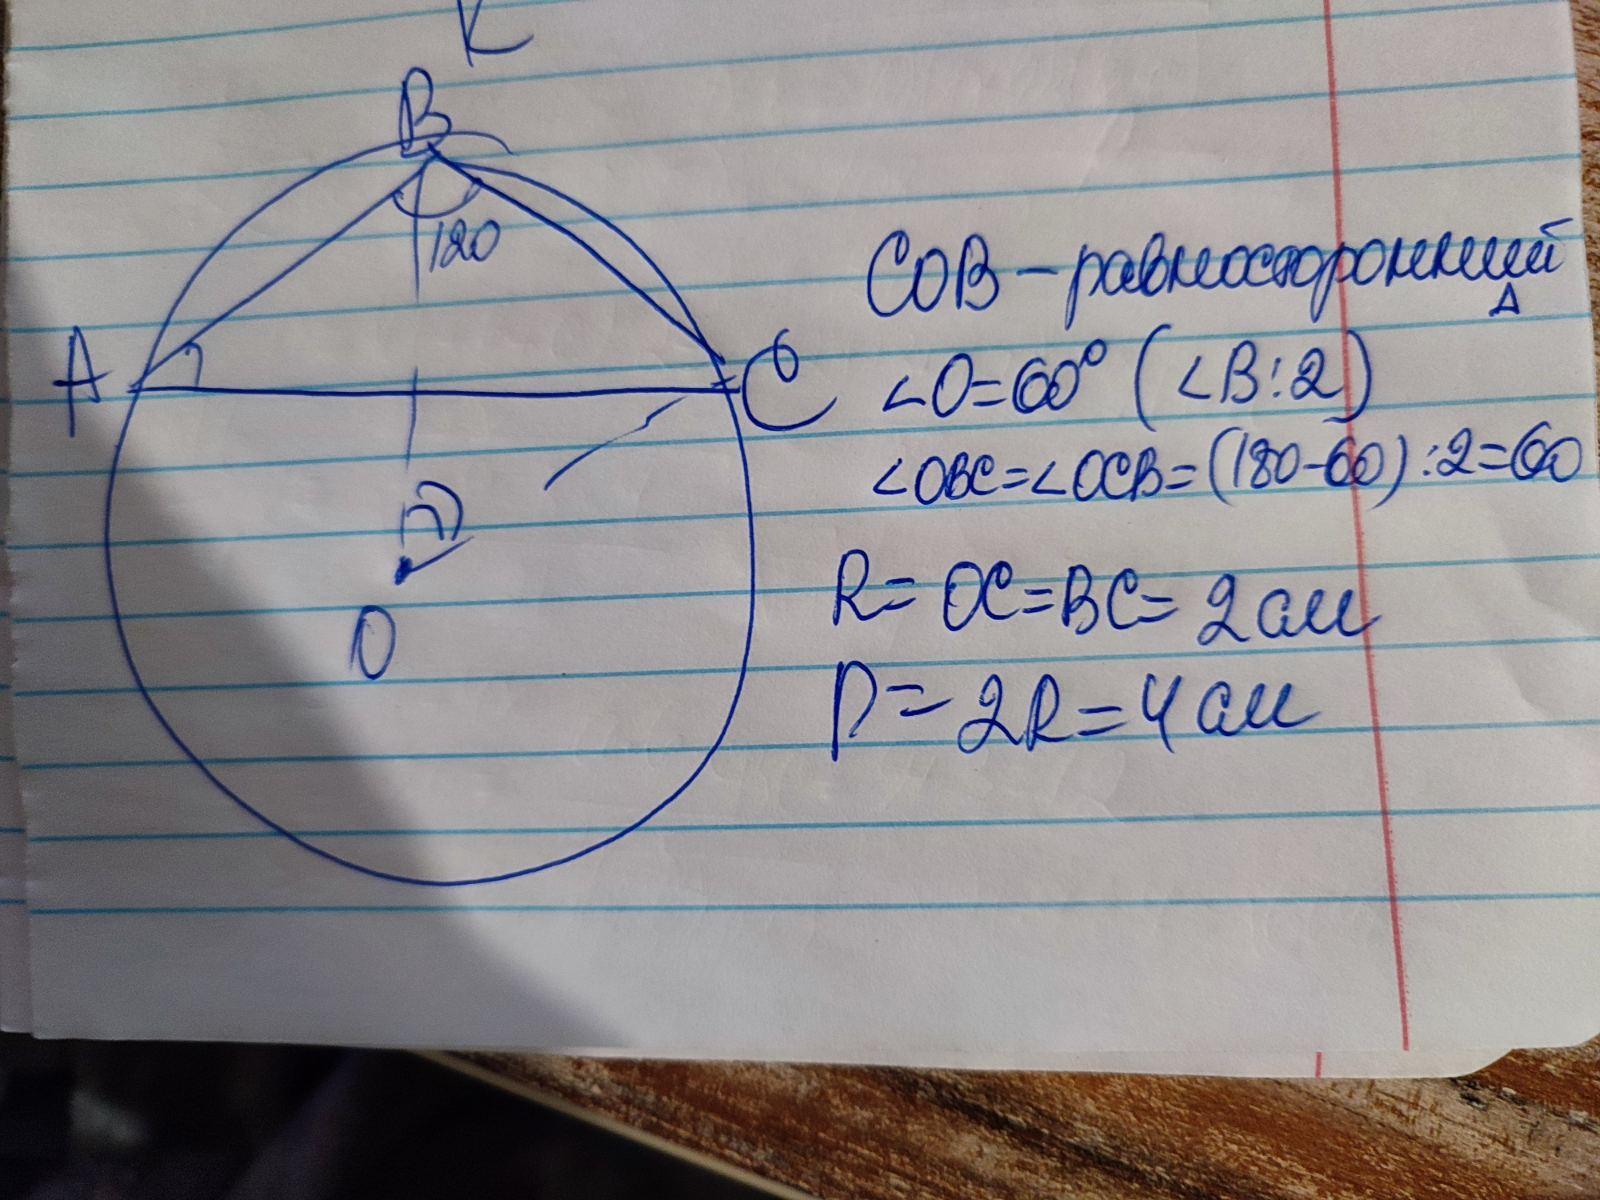 K
B
120
A
C
O
COB - равносторонний
Δ
∠O=60° (∠B:2)
∠OBC=∠OCB=(180-60):2=60
R= OC=BC= 2 см
D= 2R=4 см